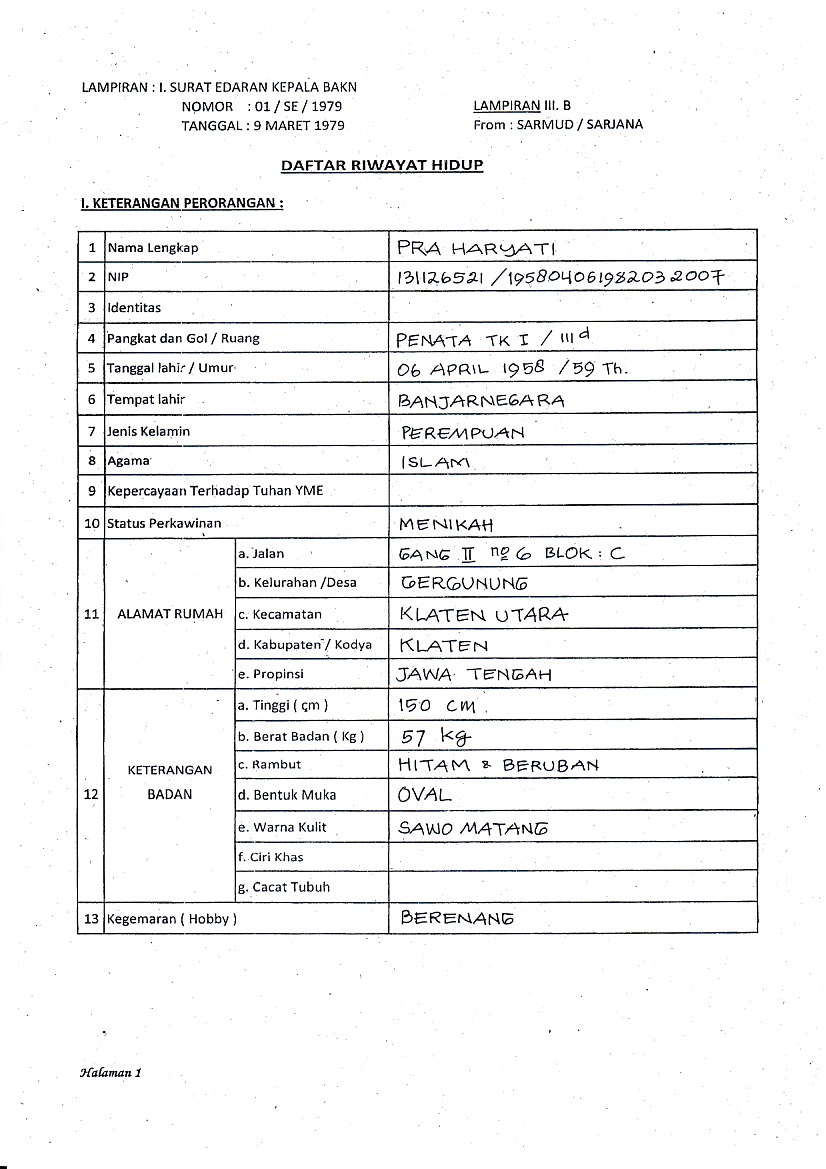 LAMPIRAN : I. SURAT EDARAN KEPALA BAKN
NOMOR : 01 / SE / 1979
LAMPIRAN III. B
TANGGAL : 9 MARET 1979
From : SARMUD / SARJANA
DAFTAR RIWAYAT HIDUP
I. KETERANGAN PERORANGAN :
1 Nama Lengkap PRA HARYATI
2 NIP 131126521 / 195804061982032007
3 Identitas
4 Pangkat dan Gol / Ruang PENATA TK I / III d
5 Tanggal lahir / Umur 06 APRIL 1958 / 59 Th.
6 Tempat lahir BANJARNEGARA
7 Jenis Kelamin PEREMPUAN
8 Agama ISLAM
9 Kepercayaan Terhadap Tuhan YME
10 Status Perkawinan MENIKAH
11 ALAMAT RUMAH
a. Jalan GANG II no 6 BLOK : C
b. Kelurahan /Desa GERGUNUNG
c. Kecamatan KLATEN UTARA
d. Kabupaten / Kodya KLATEN
e. Propinsi JAWA TENGAH
12 KETERANGAN BADAN
a. Tinggi ( cm ) 150 CM
b. Berat Badan ( Kg ) 57 kg
c. Rambut HITAM & BERUBAN
d. Bentuk Muka OVAL
e. Warna Kulit SAWO MATANG
f. Ciri Khas
g. Cacat Tubuh
13 Kegemaran ( Hobby ) BERENANG
Halaman 1